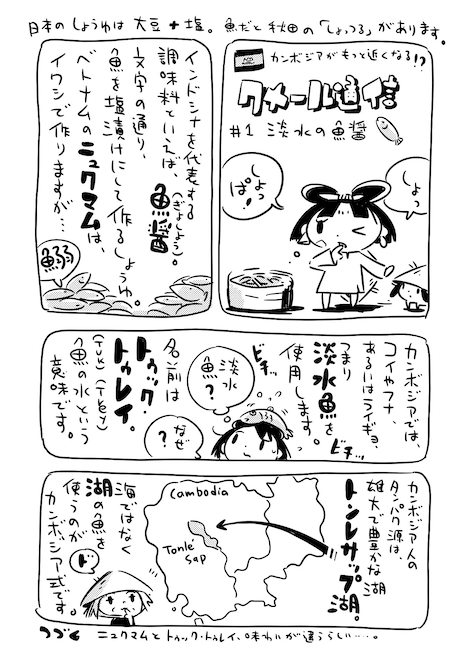 日本のしょうゆは大豆+塩。魚だと秋田の「しょっつる」があります。
カンボジアがもっと近くなる!?
クメール通信
#1 淡水の魚醤
しょっ
しょっ
ぱ!
インドシナを代表する
調味料といえば、
魚醤
(ぎょしょう)。
文字の通り、
魚を塩漬けにして作るしょうゆ。
ベトナムのニュクマムは、
イワシで作りますが…
鰯
カンボジアでは、
コイやフナ、
あるいはライギョ、
つまり
淡水魚を
使用します。
ビチッ
ビチッ
淡水
魚?
なぜ
?
名前は
トゥック・
トゥレイ。
(TUK)(TREY)
魚の水という
意味です。
カンボジア人の
タンパク源は、
雄大で豊かな湖
トンレサップ湖。
Cambodia
Tonlé
Sap
海ではなく
湖の魚を
使うのが
カンボジア式です。
ド
つづく
ニュクマムとトゥック・トゥレイ、味わいが違うらしい…。